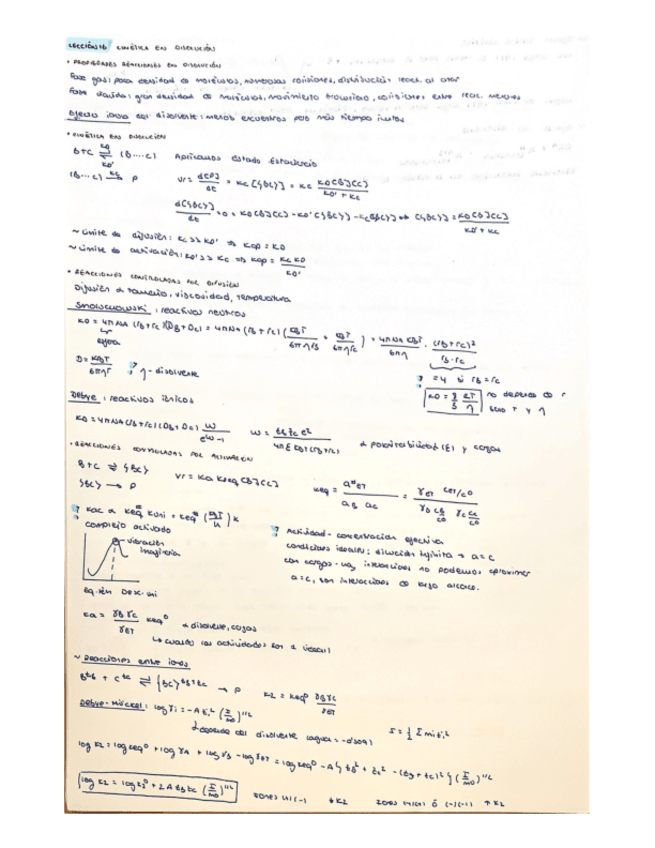 LECCIÓN 16 CINÉTICA EN DISOLUCIÓN
• PROPIEDADES REACCIONES EN DISOLUCIÓN
Fase gas: poca densidad de moléculas, numerosas colisiones, distribución react. al azar
Fase líquida: gran densidad de moléculas, movimiento browniano, colisiones entre reac. menores
Efecto jaula del disolvente: menos encuentros pero más tiempo juntos
• CINÉTICA EN DISOLUCIÓN
B+C ⇌ {B····C} Aplicamos Estado Estacionario
{B····C} → P v = d[P]/dt = kc[{BC}] = kc kD[B][C]/(kD' + kc)
d[{BC}]/dt = 0 = kD[B][C] - kD'[{BC}] - kc[{BC}] ⇒ [{BC}] = kD[B][C]/(kD' + kc)
~ Límite de difusión: kc>>kD' ⇒ kap = kD
~ Límite de activación: kD'>>kc ⇒ kap = kc kD/kD'
• REACCIONES CONTROLADAS POR DIFUSIÓN
Difusión α tamaño, viscosidad, temperatura
Smoluchowski: reactivos neutros
kD = 4πNA (rB+rC)(DB+DC) = 4πNA (rB+rC) (kBT/6πηrB + kBT/6πηrC) = 4πNA kBT/6πη · (rB+rC)²/rB·rC
esfera
D = kBT/6πηr η - disolvente
= 4 si rB = rC
kD = 8/3 RT/η no depende de r
solo T y η
Debye: reactivos iónicos
kD = 4πNA(rB+rC)(DB+DC) w/(e^w -1) w = zB zC e²/4πε kBT(rB+rC) α permitividad (ε) y cargas
• REACCIONES CONTROLADAS POR ACTIVACIÓN
B+C ⇌ {BC} v = ka keq[B][C]
{BC} → P
keq = aET/aB aC = γET cET/c⁰ / γB cB/c⁰ γC cC/c⁰
complejo activado
vibración
imaginaria
Actividad - concentración efectiva
condiciones ideales; dilución infinita → a = c
con cargas - hay interacciones no podemos aproximar
a = c, son interacciones de largo alcance.
ka = γB γC/γET keq⁰ α disolvente, cargas
↳ cuando las actividades son 1 ideal
~ Reacciones entre iones
B^zB + C^zC ⇌ {BC}^zB+zC → P k2 = keq⁰ γB γC/γET
Debye-Hückel: log γi = -A zi² (I/m0)^1/2 I = 1/2 Σ mi zi²
log k2 = log keq⁰ + log γA + log γB - log γET = log keq⁰ - A{zB² + zC² - (zB + zC)²}(I/m0)^1/2
log k2 = log k2⁰ + 2A zB zC (I/m0)^1/2 iones +/(-) ↓k2 iones +/(+) ó (-)(-) ↑k2